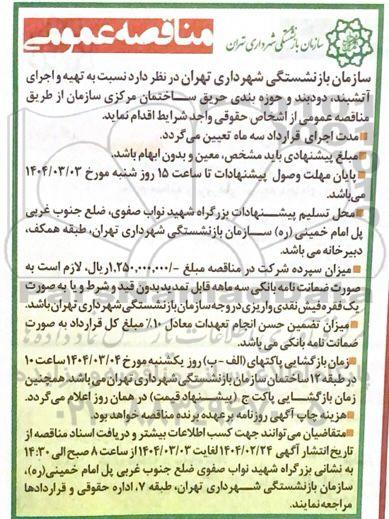 مناقصه عمومی
سازمان بازنشستگی شهرداری تهران
سازمان بازنشستگی شهرداری تهران در نظر دارد نسبت به تهیه و اجرای
آتشبند، دودبند و حوزه بندی حریق ساختمان مرکزی سازمان از طریق
مناقصه عمومی از اشخاص حقوقی واجد شرایط اقدام نماید.
■مدت اجرای قرارداد سه ماه تعیین می‌گردد.
■مبلغ پیشنهادی باید مشخص، معین و بدون ابهام باشد.
■پایان مهلت وصول پیشنهادات تا ساعت ۱۵ روز شنبه مورخ ۱۴۰۴/۰۳/۰۳
می‌باشد.
■محل تسلیم پیشنهادات بزرگراه شهید نواب صفوی، ضلع جنوب غربی
پل امام خمینی (ره) سازمان بازنشستگی شهرداری تهران، طبقه همکف،
دبیرخانه می باشد.
■میزان سپرده شرکت در مناقصه مبلغ -/۱,۲۵۰,۰۰۰,۰۰۰ریال، لازم است به
صورت ضمانت نامه بانکی سه ماهه قابل تمدید بدون قید و شرط و یا به صورت
یک فقره فیش نقدی واریزی در وجه سازمان بازنشستگی شهرداری تهران باشد.
■میزان تضمین حسن انجام تعهدات معادل ۱۰٪ مبلغ کل قرارداد به صورت
ضمانت نامه بانکی می باشد.
■زمان بازگشایی پاکتهای (الف -ب) روز یکشنبه مورخ ۱۴۰۴/۰۳/۰۴ ساعت ۱۰
در طبقه ۱۲ ساختمان سازمان بازنشستگی شهرداری تهران می باشد. همچنین
زمان بازگشایی پاکت ج (پیشنهاد قیمت) در همان روز اعلام می‌گردد.
■هزینه چاپ آگهی روزنامه بر عهده برنده مناقصه خواهد بود.
■متقاضیان می‌توانند جهت کسب اطلاعات بیشتر و دریافت اسناد مناقصه از
تاریخ انتشار آگهی ۱۴۰۴/۰۲/۲۴ لغایت ۱۴۰۴/۰۳/۰۳ از ساعت ۸ صبح الی ۱۴:۳۰
به نشانی بزرگراه شهید نواب صفوی ضلع جنوب غربی پل امام خمینی(ره)،
سازمان بازنشستگی شهرداری تهران، طبقه ۷، اداره حقوقی و قراردادها
مراجعه نمایند.